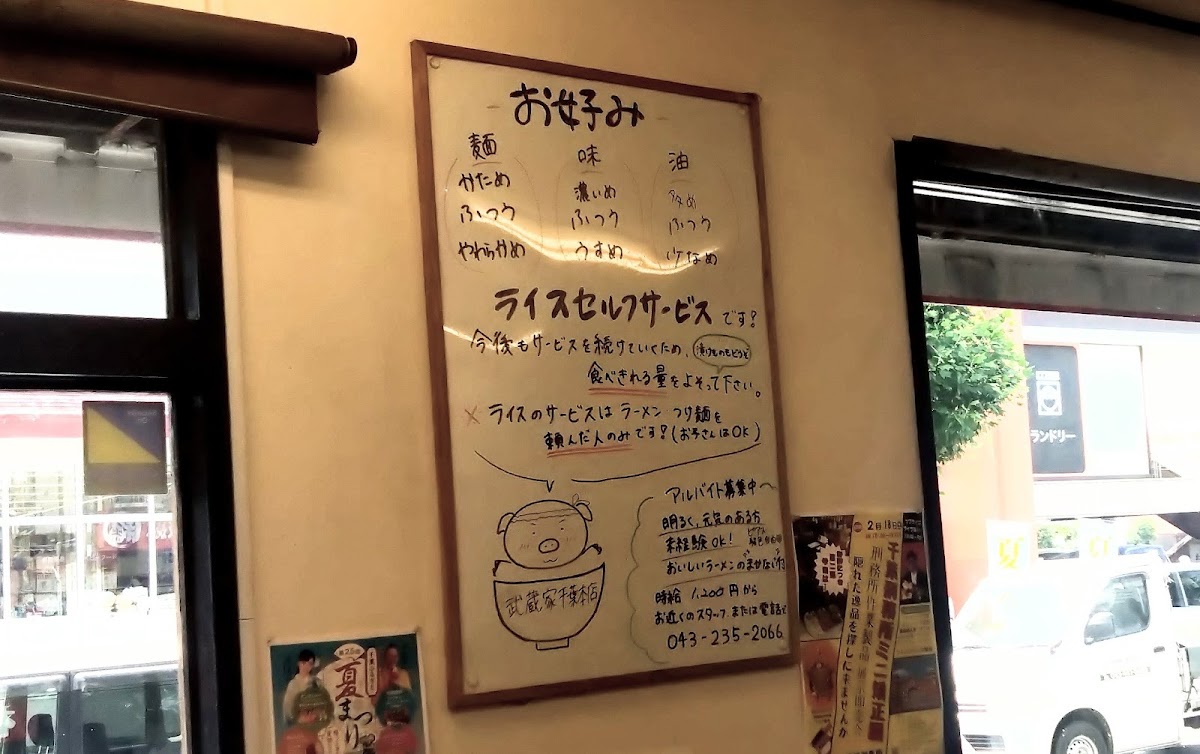 お好み
麺 味 油
かため 濃いめ 多め
ふつう ふつう ふつう
やわらかめ うすめ 少なめ
ライスセルフサービスです!
今後もサービスを続けていくため、
漬けものもどうぞ
食べきれる量をよそって下さい。
× ライスのサービスは ラーメン つけ麺を
頼んだ人のみです!(お子さんはOK)
武蔵家千葉本店
アルバイト募集中〜
明るく、元気のある方
未経験OK!
おいしいラーメンのまかない付
時給 1,200円から
お近くのスタッフ または 電話で
043-235-2066
夏まつり
2月18日
千葉刑務所ミニ矯正展
刑務所作業製品展示即売会
隠れた逸品を探しに来ませんか
ランドリー
夏